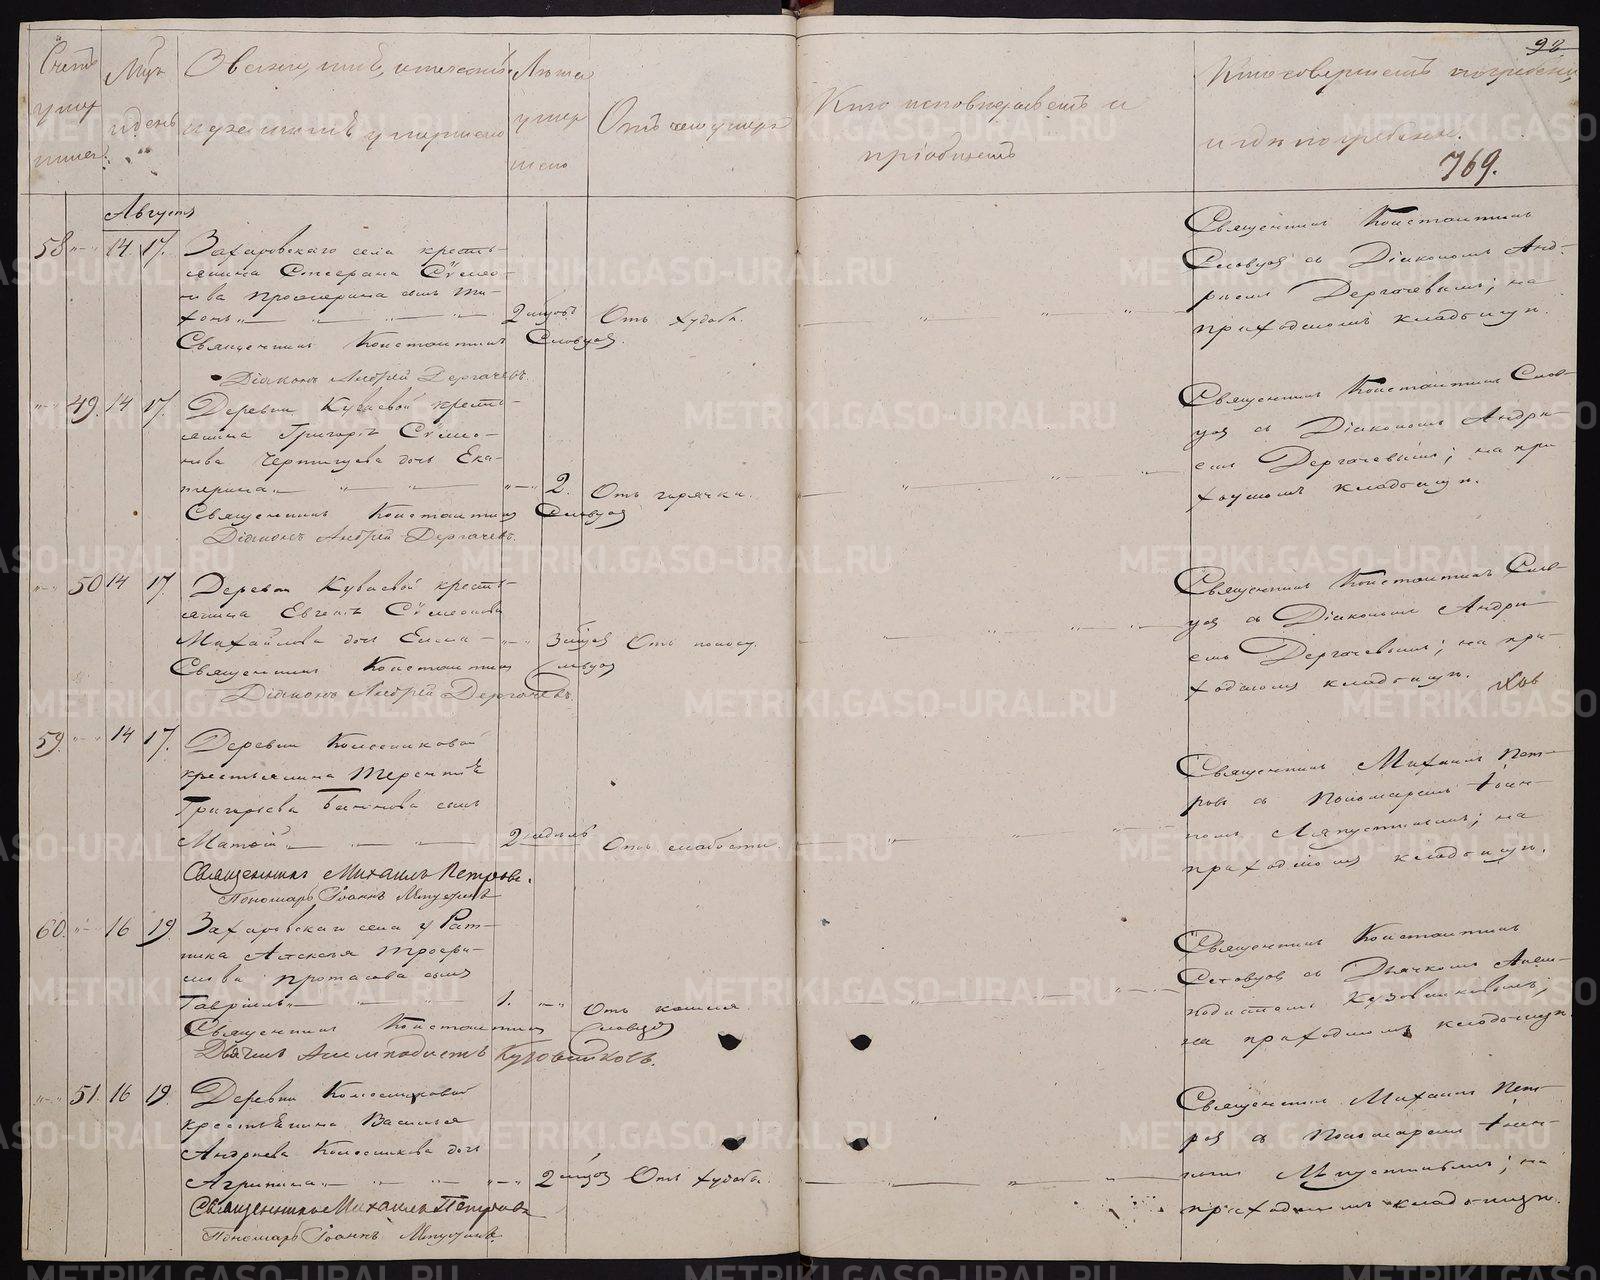 98
769.
Счетъ умер шихъ.
Мѣс. и день
Званіе, имя, отчество
и фамилія умершаго
Лѣта
умер
шаго
Отъ чего умеръ
Кто исповѣдывалъ и
пріобщалъ
Кто совершалъ погребеніе
и гдѣ погребены.
Августъ
58 14 17. Захаровскаго села кресть-
янина Стефана Сѵмео-
нова сынъ Ти-
хонъ 2 мѣсяц. Отъ худобы.
Священникъ Константинъ Словцовъ.
Діаконъ Андрей Дергачевъ.
Священникъ Константинъ
Словцовъ съ Діакономъ Анд-
реемъ Дергачевымъ; на
приходскомъ кладбищѣ.
49. 14 17. Деревни Куваевой кресть-
янина Григорія Сѵмео-
нова дочь Ека-
терина 2. Отъ горячки.
Священникъ Константинъ Словцовъ
Діаконъ Андрей Дергачевъ.
Священникъ Константинъ Слов-
цовъ съ Діакономъ Андре-
емъ Дергачевымъ; на при-
ходскомъ кладбищѣ.
50 14 17. Деревни Куваевой кресть-
янина Евгенія Сѵмеонова
Михайлова дочь 3 мѣсяц. Отъ поносу.
Священникъ Константинъ Словцовъ
Діаконъ Андрей Дергачевъ.
Священникъ Константинъ Слов-
цовъ съ Діакономъ Андре-
емъ Дергачевымъ; на при-
ходскомъ кладбищѣ.
59. 14 17. Деревни Колесниковой
крестьянина Терентія
Григорьева сынъ
Матѳій 2 недѣль Отъ слабости.
Священникъ Михаилъ Петровъ.
Пономарь Іоаннъ Ляпустинъ
Священникъ Михаилъ Пет-
ровъ съ Пономаремъ Іоан-
номъ Ляпустинымъ; на
приходскомъ кладбищѣ.
60. 16 19. Захаровскаго села у Рат-
ника Алексѣя Трофи-
мова Протасова сынъ
Гавріилъ 1. Отъ кашля.
Священникъ Константинъ Словцовъ
Дьячекъ Анемподистъ Кузовниковъ.
Священникъ Константинъ
Словцовъ съ Дьячкомъ Анем-
подистомъ Кузовниковымъ;
на приходскомъ кладбищѣ.
51. 16 19. Деревни Колесниковой
крестьянина Василья
Андреева Колесникова дочь
Агрипина 2 мѣсяц. Отъ худобы.
Священникъ Михаилъ Петровъ
Пономарь Іоаннъ Ляпустинъ.
Священникъ Михаилъ Пет-
ровъ съ Пономаремъ Іоан-
номъ Ляпустинымъ; на
приходскомъ кладбищѣ.
METRIKI.GASO-URAL.RU